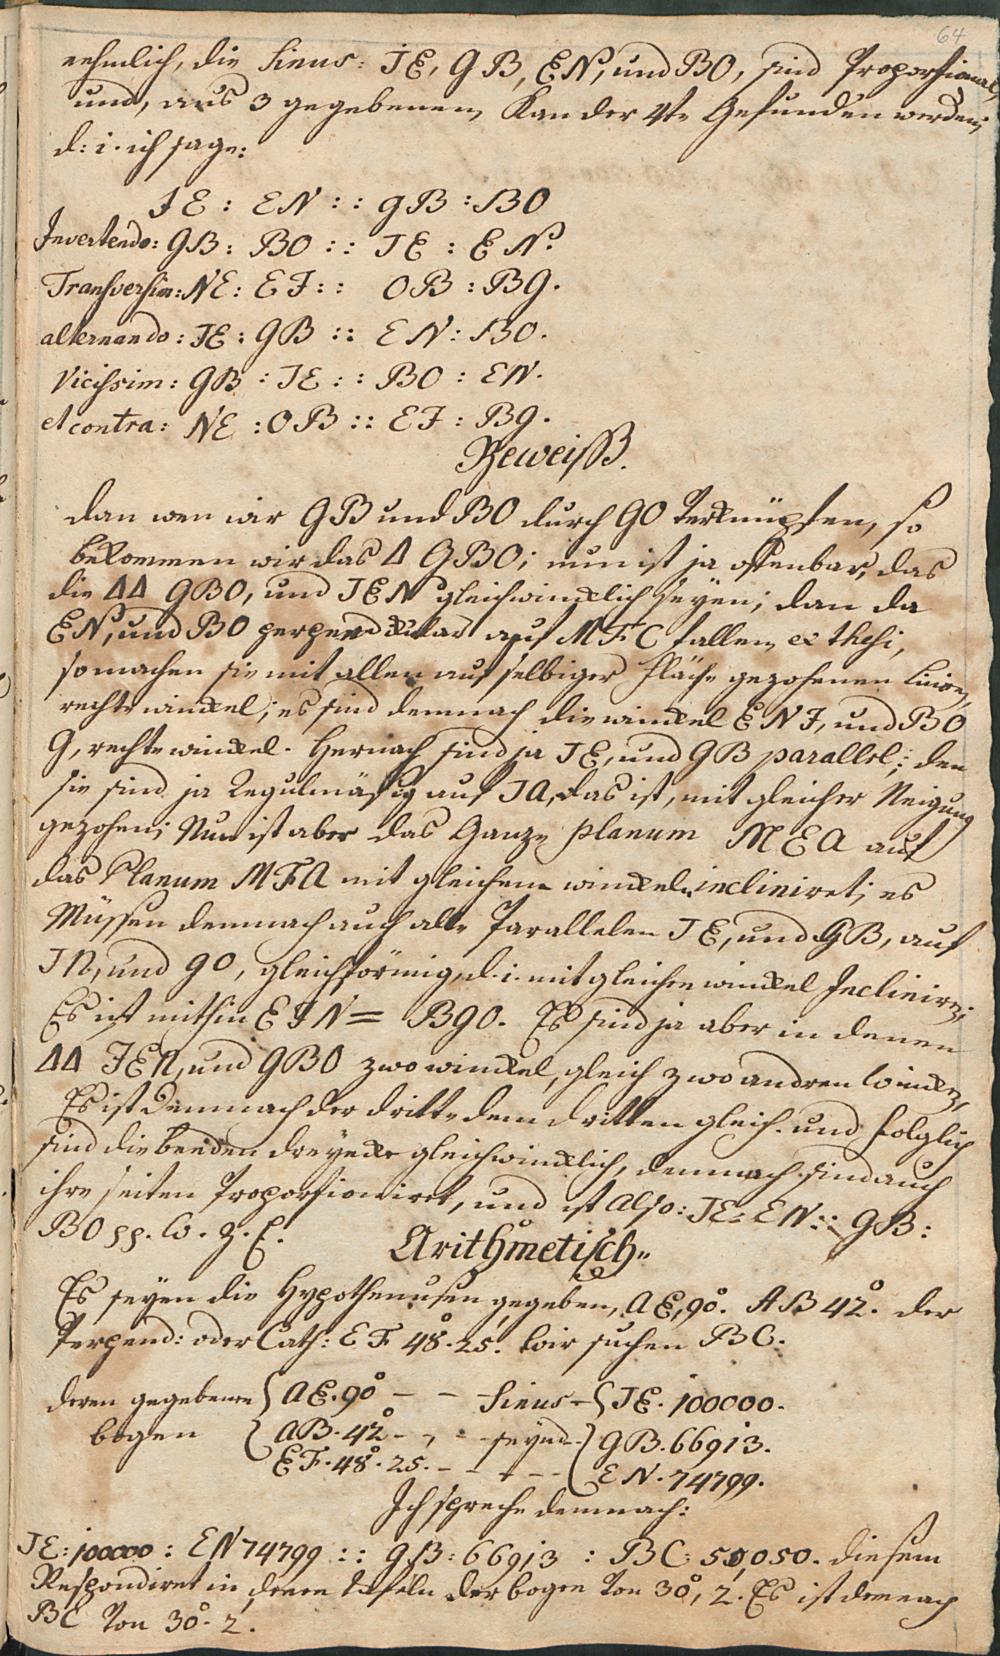 64
nehmlich, die Sinus: JE, GB, EN, und BO, sind Proportional,
und, aus 3 gegebenen, Kan der 4te Gefunden werden;
d: i. ich sage:
JE : EN :: gB : BO
Invertendo: GB : BO :: JE : EN.
Transversim: NE : EJ :: OB : Bg.
alternando: JE : GB :: EN : BO.
Vicissim: GB : JE :: BO : EN.
et contra: NE : OB :: EJ : Bg.
Beweiß.
Dan wen wir GB und BO durch GO verknüpfen, so
bekommen wir das Δ GBO; nun ist ja offenbar, das
die ΔΔ GBO, und JEN gleichwincklich seyen; dan da
EN, und BO perpendicular auf MFC fallen, ex thesi,
so machen sie mit allen auf selbiger Fläche gezohenen Linien,
rechte winckel; es sind demnach die winckel ENJ, und BO
G, rechte winckel. Hernach sind ja JE, und GB parallel; den
sie sind ja Regulmäßig auf JA, das ist, mit gleicher Neigung
gezohen; Nun ist aber das Ganze planum MEA auf
das Planum MFA mit gleichem winckel incliniret; es
Müssen demnach auch alle Parallelen JE, und GB, auf
JN, und gO, gleichförmig, d. i. mit gleichen winckel Incliniren;
Es ist mithin EJN = BgO. Es sind ja aber in denen
ΔΔ JEN, und GBO zwo winckel, gleich zwo andren winckeln,
Es ist demnach der dritte dem dritten gleich. und folglich
sind die beeden dreyecke gleichwincklich, demnach sind auch
ihre seiten Proportioniret, und ist also: JE : EN :: GB :
BO pp. W. Z. E.
Arithmetisch.
Es seyen die Hypothenusen, gegeben, AE, 90°. AB 42°. der
Perpend: oder Cath: EF 48°. 25. wir suchen BC.
deren gegebenen { AE. 90° - - Sinus - { JE. 100000.
bogen { AB. 42° - - - seynd { GB. 66913.
EF. 48°. 25. - - - - { EN. 74799.
Ich spreche demnach:
JE: 100000 : EN 74799 :: gB: 66913 : BC: 50,050. diesem
Respondiret in denen tafeln der bogen von 30°, 2. Es ist demnach
BC von 30°. 2.